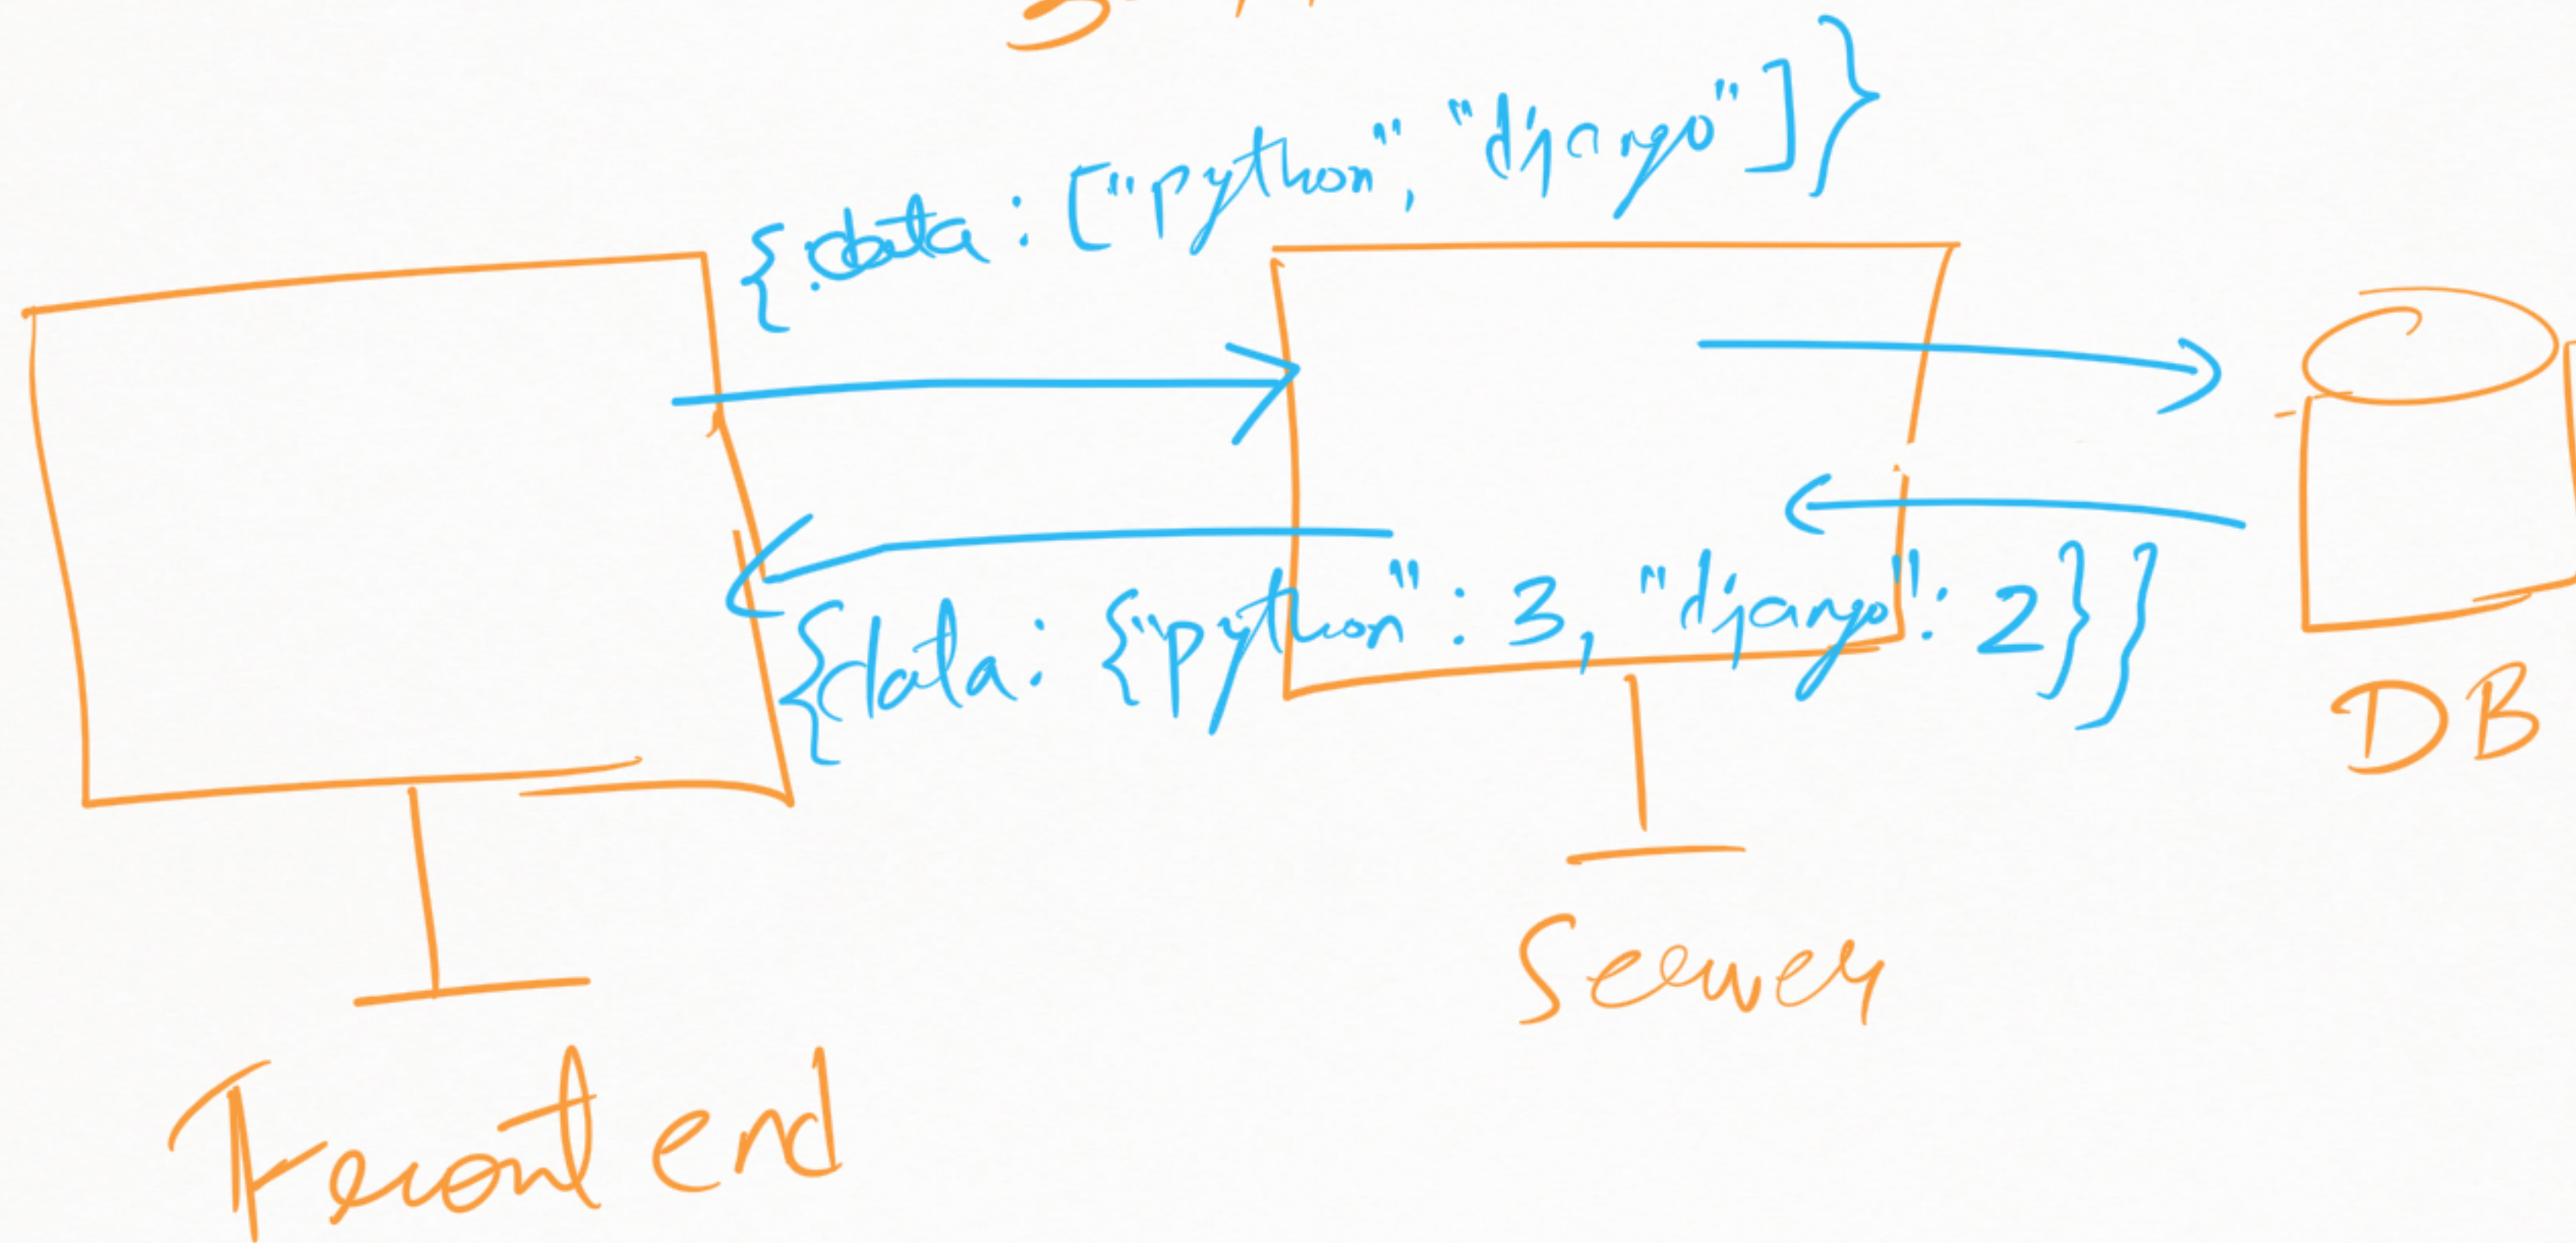 {data: ["python", "django"]}
{data: {"python": 3, "django": 2}}
DB
Server
Front end